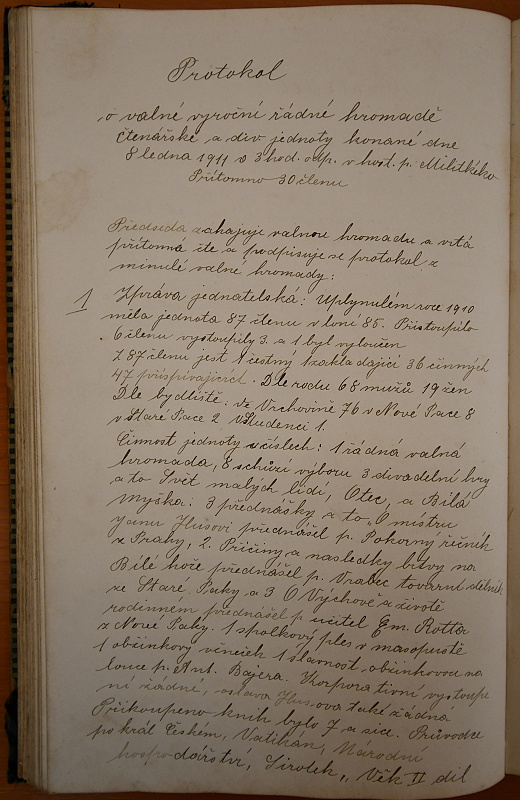 Protokol
o valné vyroční řádné hromadě
čtenářské a div. jednoty konané dne
8 ledna 1911 o 3 hod. odp. v host. p. Militkého
Přítomno 30 členu
Předseda zahajuje valnou hromadu a vítá
přítomná čte a podpisuje se protokol z
minulé valné hromady:
1 Zpráva jednatelská: Uplynulém roce 1910
měla jednota 87 členu v loni 85. Přistoupilo
6 členu vystoupily 3. a 1 byl vyloučen
Z 87 členu jest 1 čestný 1 zakladající 36 činných
47 přispívajících. Dle rodu 68 mužů 19 žen
Dle bydliště: ve Vrchovině 76 v Nové Pace 8
v Staré Pace 2 v Studenci 1.
Činnost jednoty v číslech: 1 řádná valná
hromada, 8 schůzí výboru 3 divadelní hry
a to Svět malých lidí, Otec, a Bílá
Myška. 3 přednášky a to „O mistru
Janu Husovi přednášel p. Pokorný řičník
z Prahy, 2. Příčiny a nasledky bitvy na
Bílé hoře přednášel p. Vrabec tovarní dělník
ze Staré Paky a 3 O Výchově a životě
rodinnem přednášel p učitel Em. Rotta
z Nové Paky. 1 spolkový ples v masopustě
1 obžinkový vineček 1 slavnost obžinkovou na
louce p. Ant. Bajera. Korporativní vystoupe
ní žádné, oslava Husova také žádná
Přikoupeno knih bylo 7 a sice. Průvodce
po král Českém, Vatikán, Národní
hospodářství, Sirotek, Věk II díl